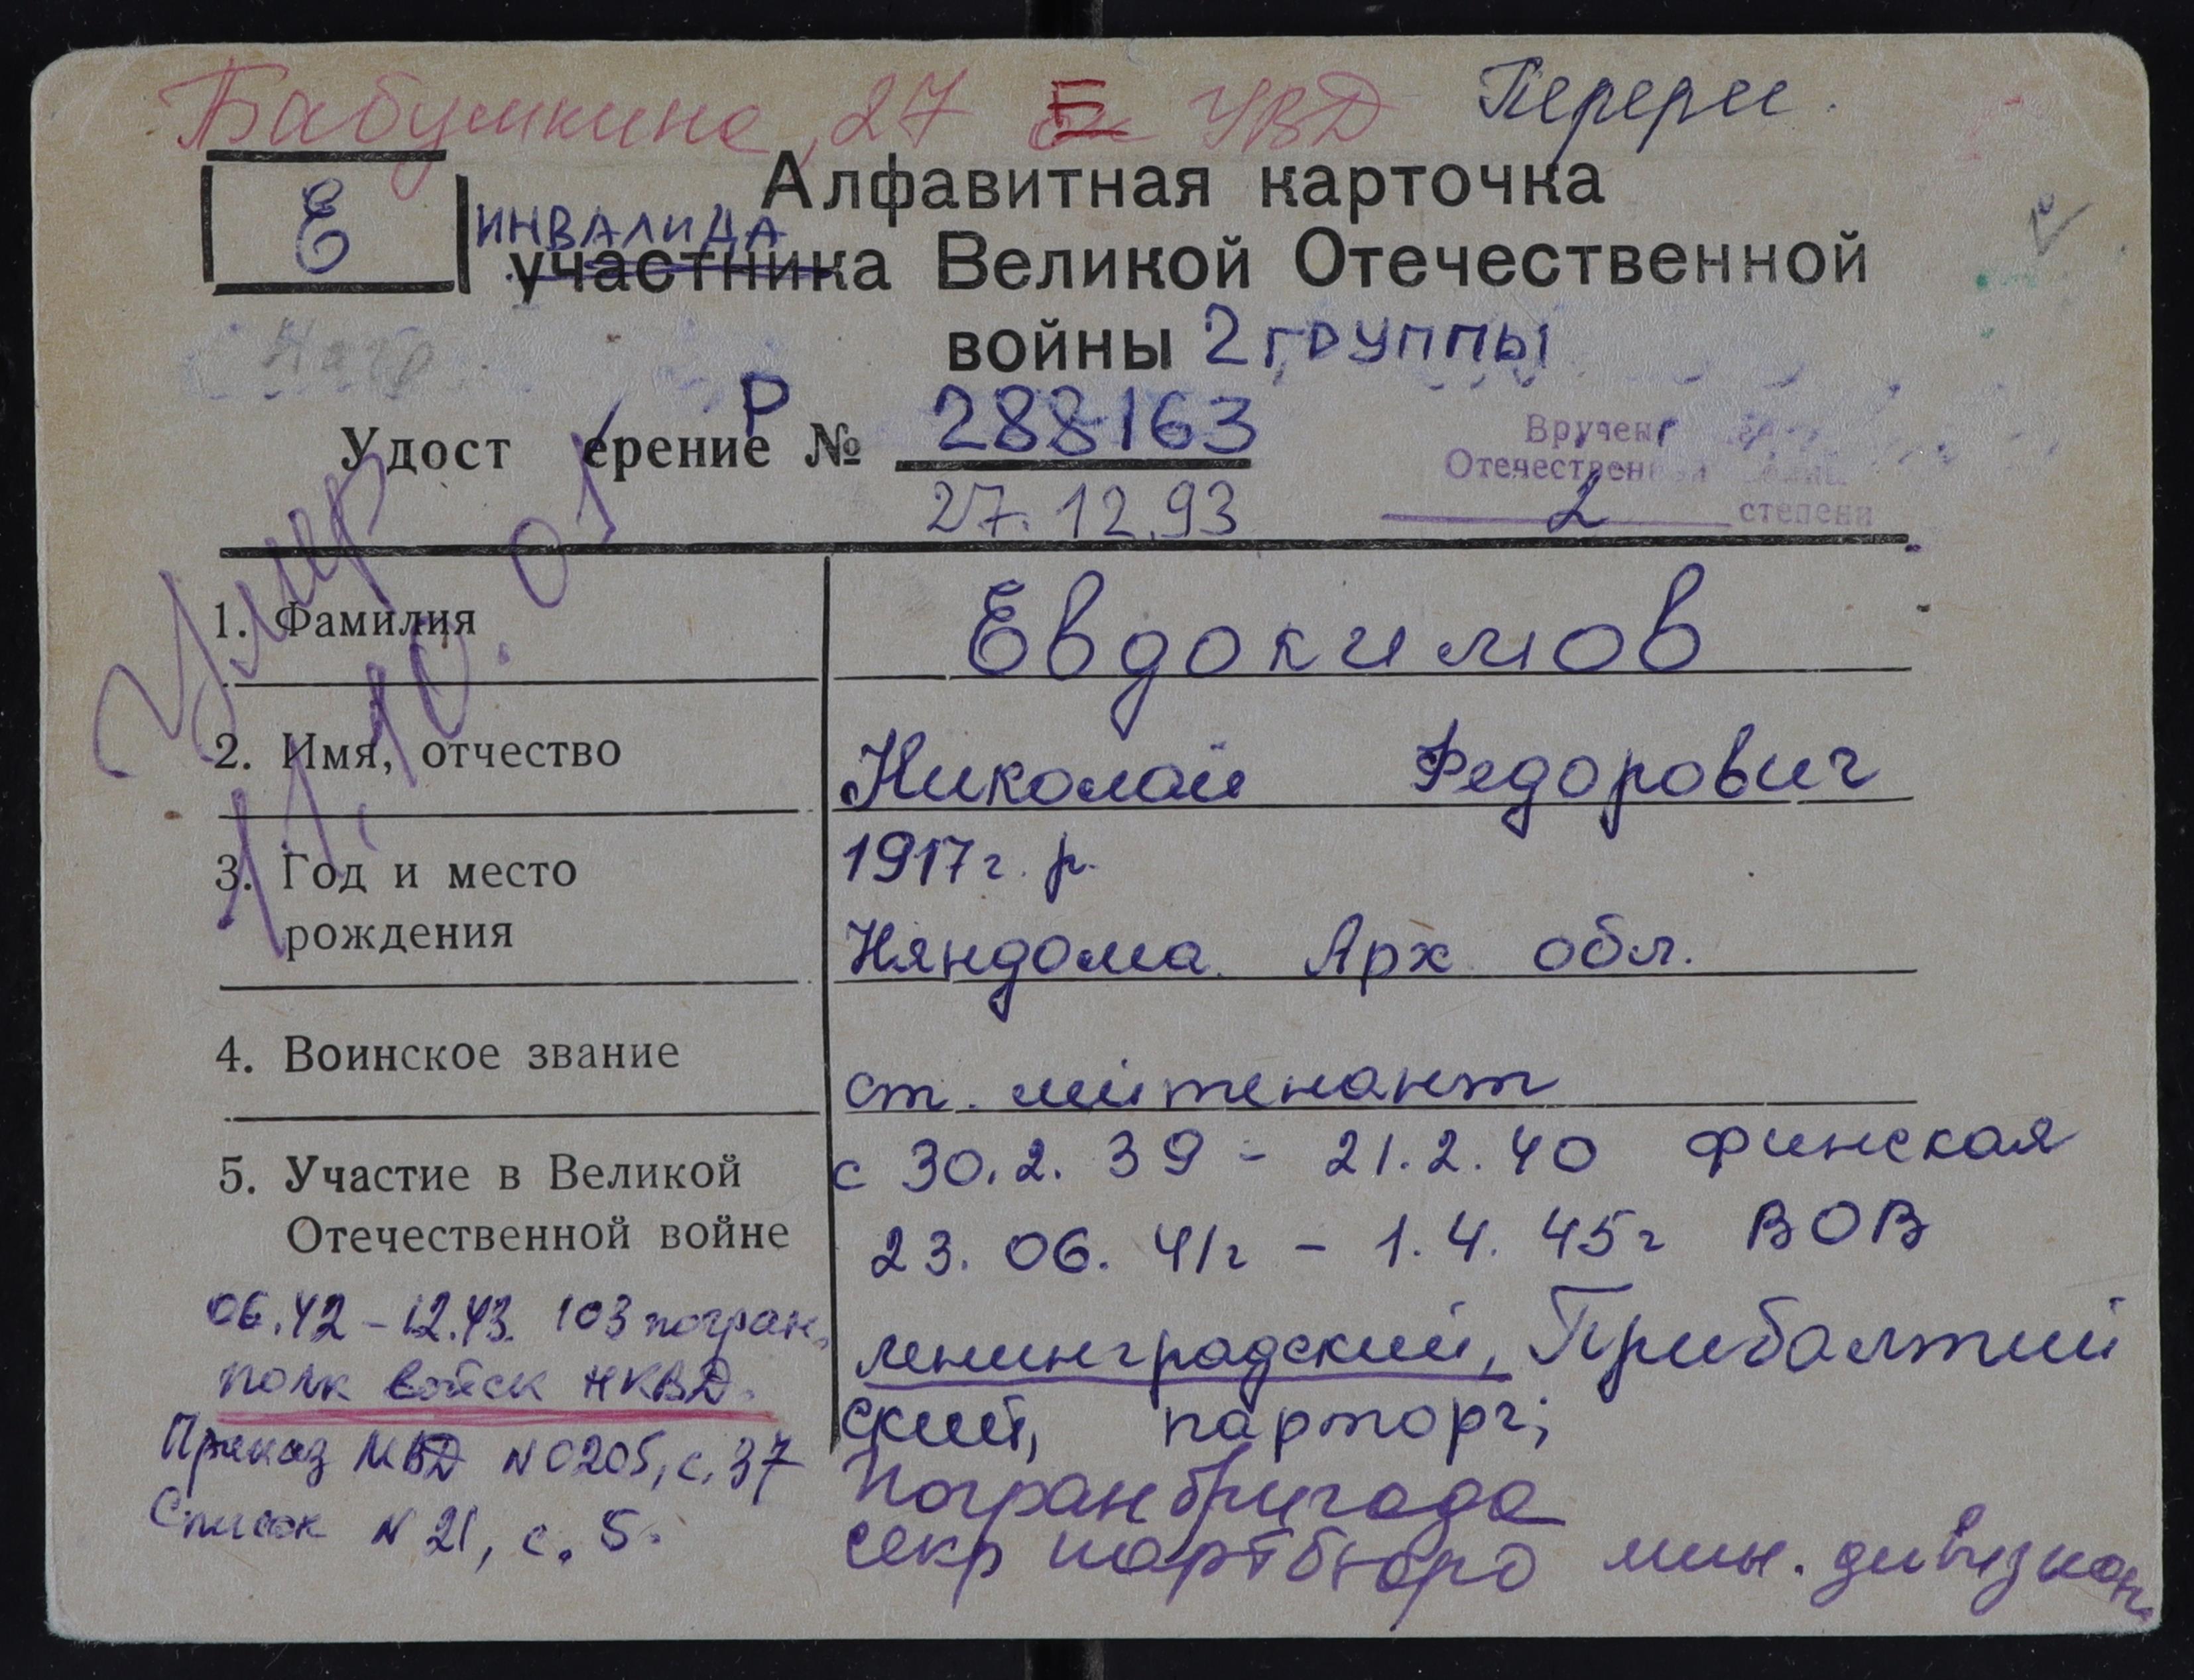 Бабушкина, 27 Б УВД Перерег.
Е
Алфавитная карточка
инвалида
участника Великой Отечественной
войны 2 группы
Удост ерение Р № 288163
27.12.93
Вручен
Отечествен
2 степени
Умер
11.10.01
1. Фамилия
Евдокимов
2. Имя, отчество
Николай Федорович
3. Год и место
рождения
1917 г. р.
Няндома Арх обл.
4. Воинское звание
ст. лейтенант
5. Участие в Великой
Отечественной войне
с 30.2.39 - 21.2.40 финская
23.06.41г - 1.4.45г ВОВ
ленинградский, Прибалтий
ский, парторг;
Погранбригада
секр партбюро мин. дивизион
06.42 - 12.43. 103 погран.
полк войск НКВД.
Приказ МВД N 0205, с. 37
Список N 21, с. 5.